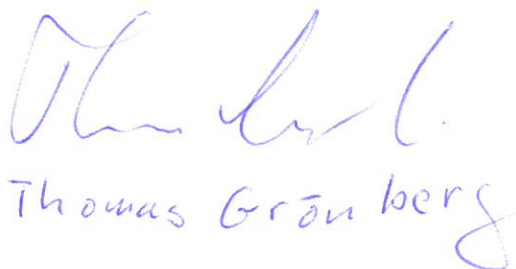 Thomas Grönberg